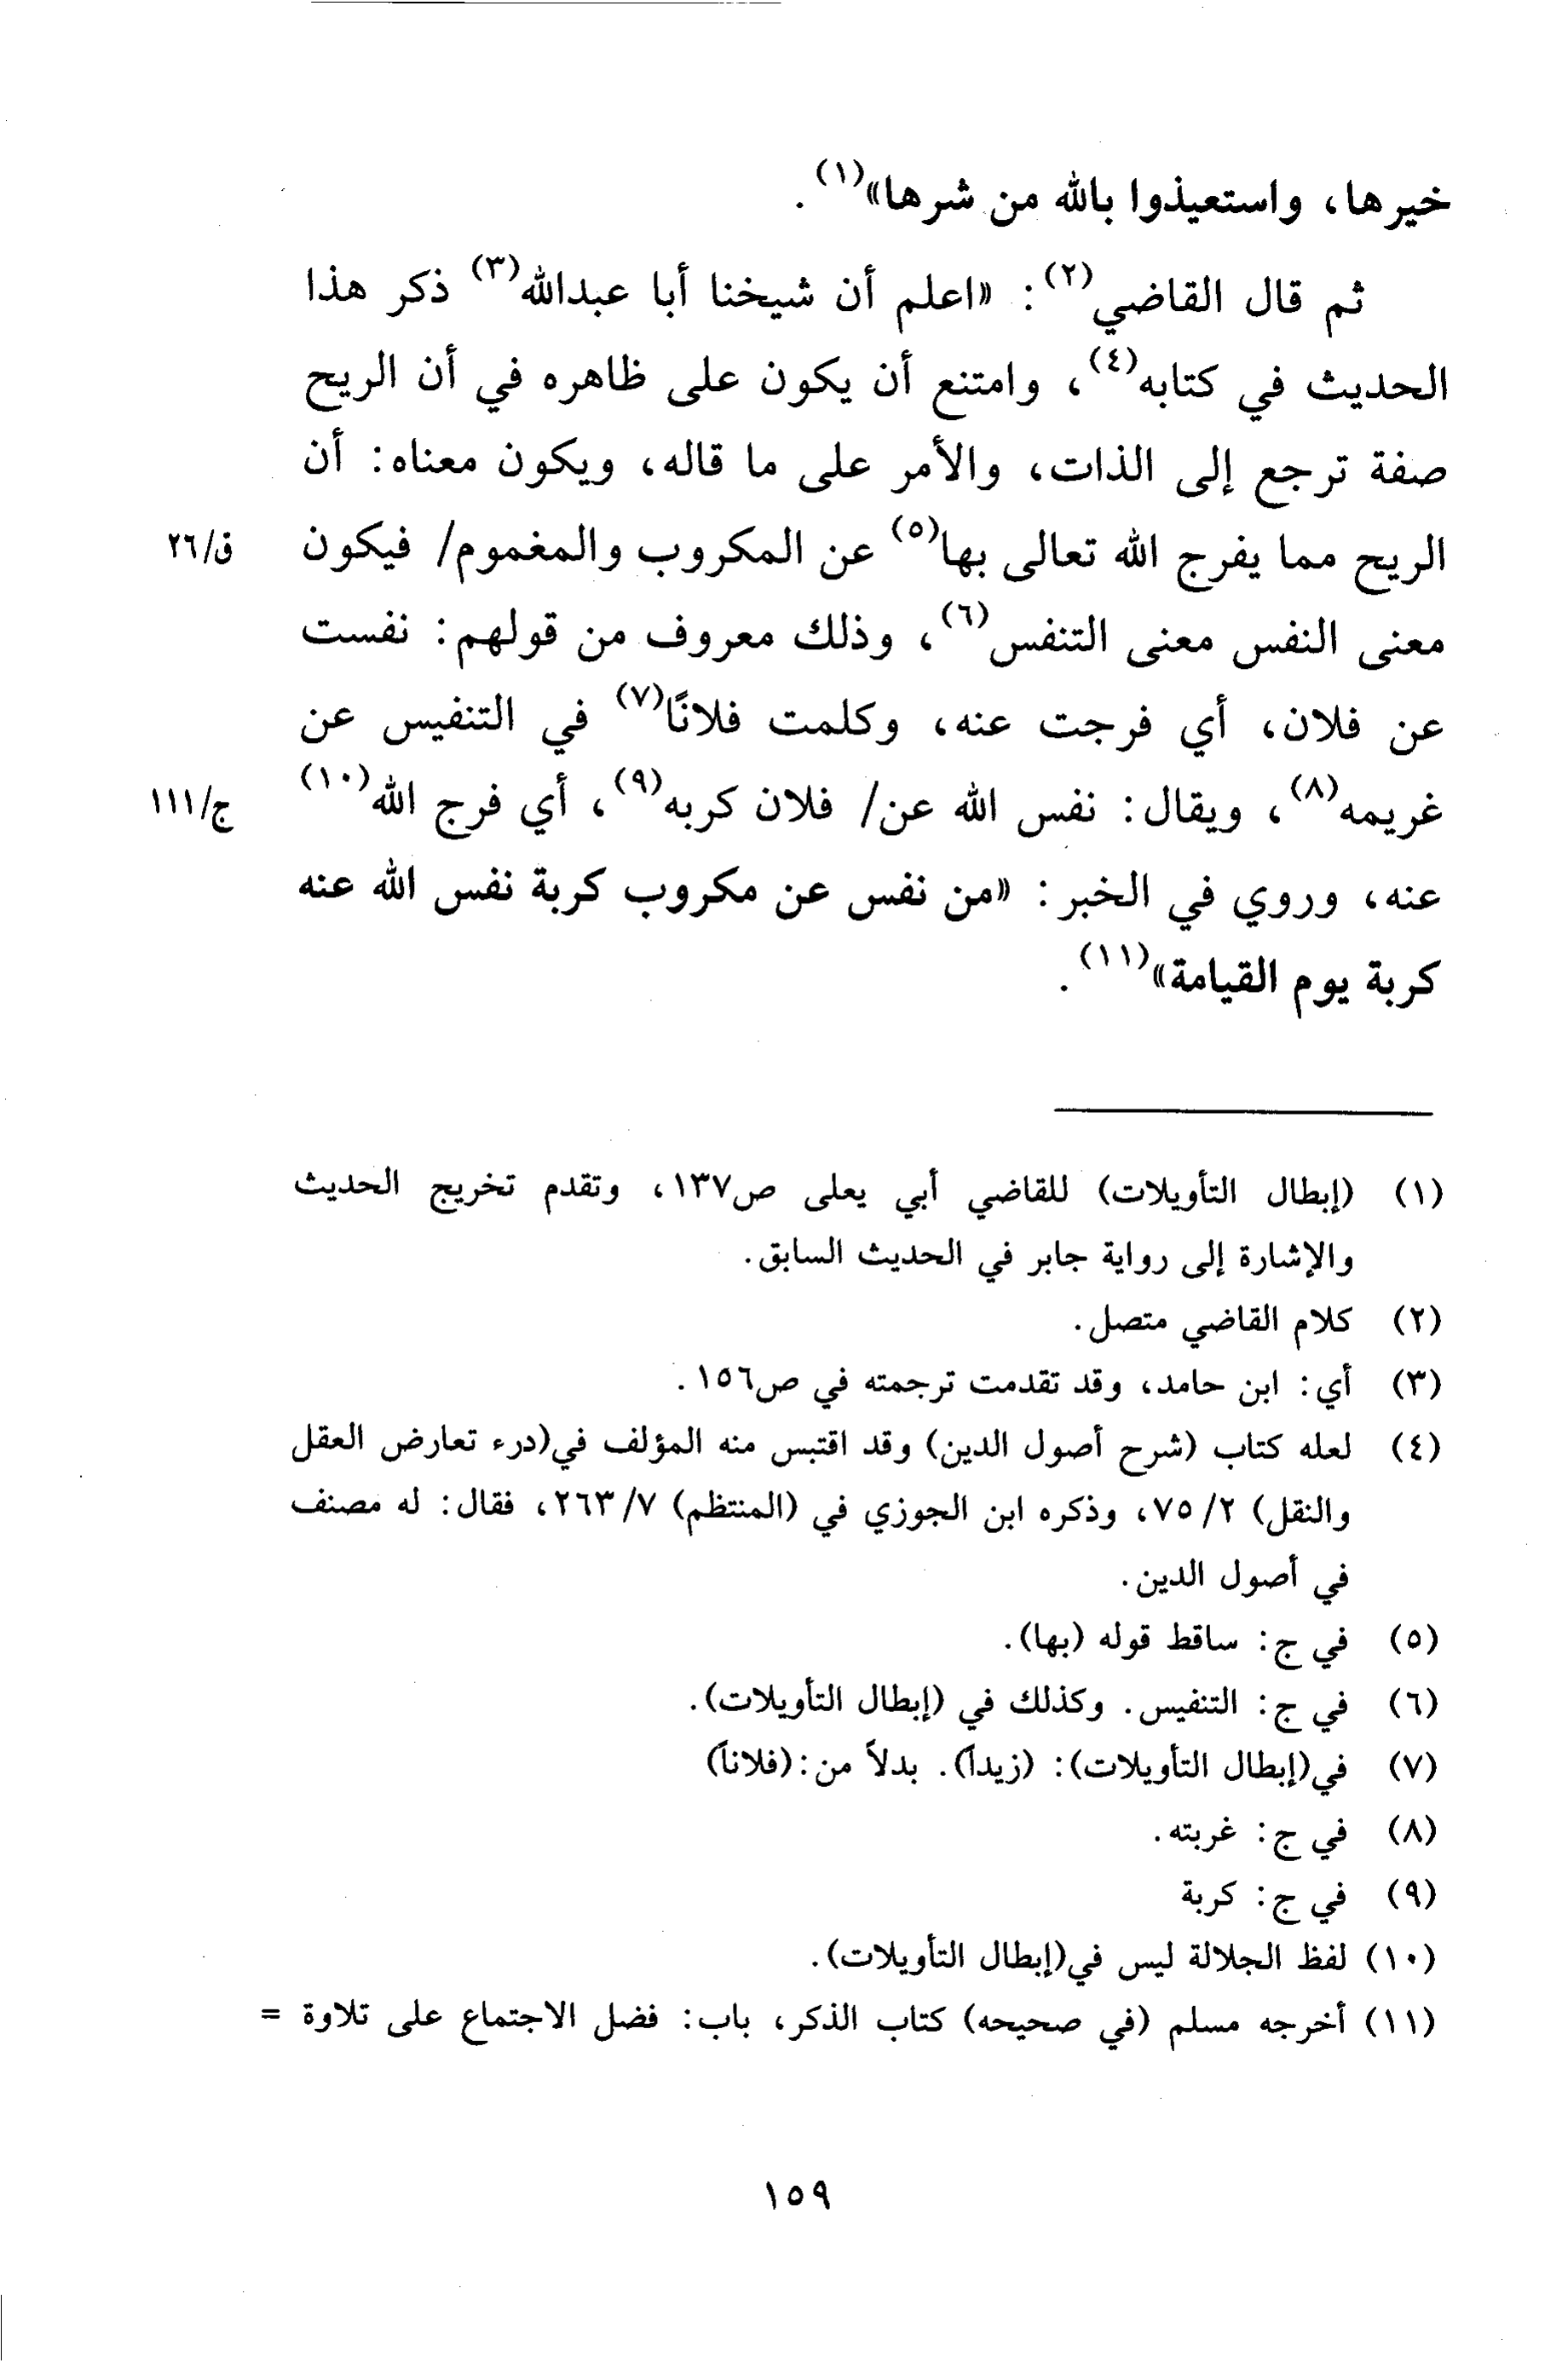 خيرها، واستعيذوا بالله من شرها»(١).
ثم قال القاضي(٢): «اعلم أن شيخنا أبا عبدالله(٣) ذكر هذا
الحديث في كتابه(٤)، وامتنع أن يكون على ظاهره في أن الريح
صفة ترجع إلى الذات، والأمر على ما قاله، ويكون معناه: أن
الريح مما يفرج الله تعالى بها(٥) عن المكروب والمغموم/ فيكون ق/٢٦
معنى النفس معنى التنفس(٦)، وذلك معروف من قولهم: نفست
عن فلان، أي فرجت عنه، وكلمت فلانًا(٧) في التنفيس عن
غريمه(٨)، ويقال: نفس الله عن/ فلان كربه(٩)، أي فرج الله(١٠) ج/١١١
عنه، وروي في الخبر: «من نفس عن مكروب كربة نفس الله عنه
كربة يوم القيامة»(١١).
(١) (إبطال التأويلات) للقاضي أبي يعلى ص١٣٧، وتقدم تخريج الحديث
والإشارة إلى رواية جابر في الحديث السابق.
(٢) كلام القاضي متصل.
(٣) أي: ابن حامد، وقد تقدمت ترجمته في ص١٥٦.
(٤) لعله كتاب (شرح أصول الدين) وقد اقتبس منه المؤلف في(درء تعارض العقل
والنقل) ٢/ ٧٥، وذكره ابن الجوزي في (المنتظم) ٧/ ٢٦٣، فقال: له مصنف
في أصول الدين.
(٥) في ج: ساقط قوله (بها).
(٦) في ج: التنفيس. وكذلك في (إبطال التأويلات).
(٧) في(إبطال التأويلات): (زيداً). بدلاً من:(فلاناً)
(٨) في ج: غربته.
(٩) في ج: كربة
(١٠) لفظ الجلالة ليس في(إبطال التأويلات).
(١١) أخرجه مسلم (في صحيحه) كتاب الذكر، باب: فضل الاجتماع على تلاوة =
١٥٩